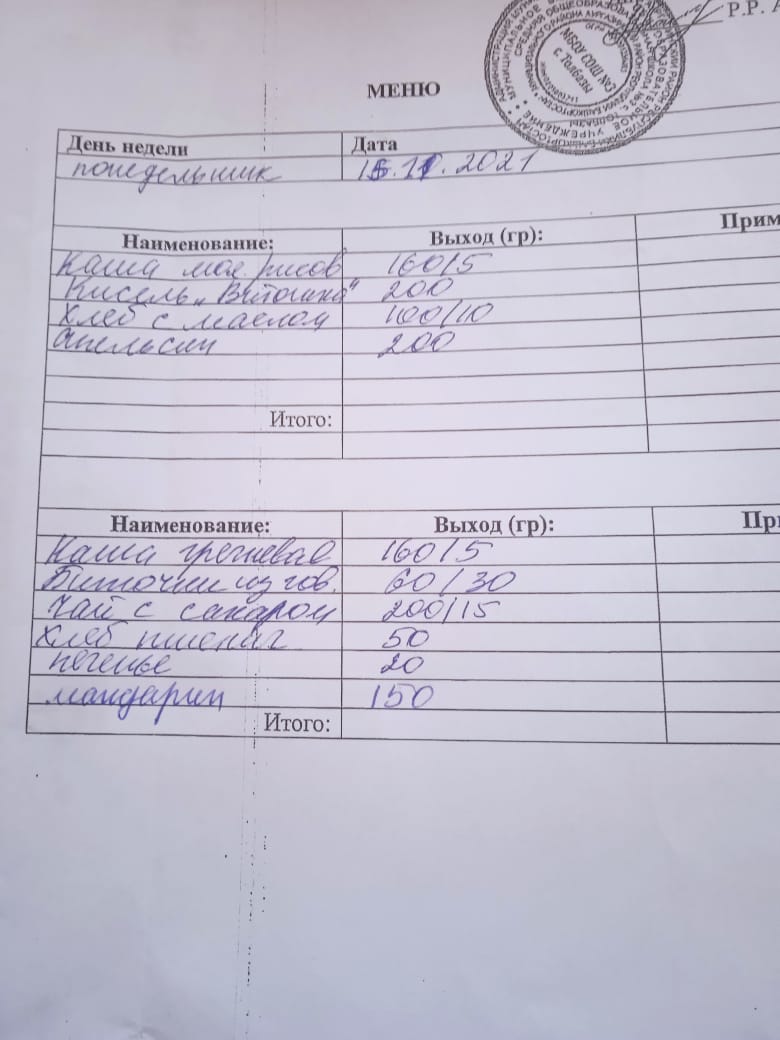 Р.Р. А
МБОУ СОШ №3
с. Толбазы
МЕНЮ
День недели Дата
понедельник 15.11.2021
Наименование: Выход (гр): Прим
Каша мол. рисов 160/5
Кисель „Витошка" 200
Хлеб с маслом 100/10
апельсин 200
Итого:
Наименование: Выход (гр): При
Каша гречневая 160/5
Биточки из гов. 60/30
Чай с сахаром 200/15
Хлеб пшенич 50
печенье 20
мандарин 150
Итого: